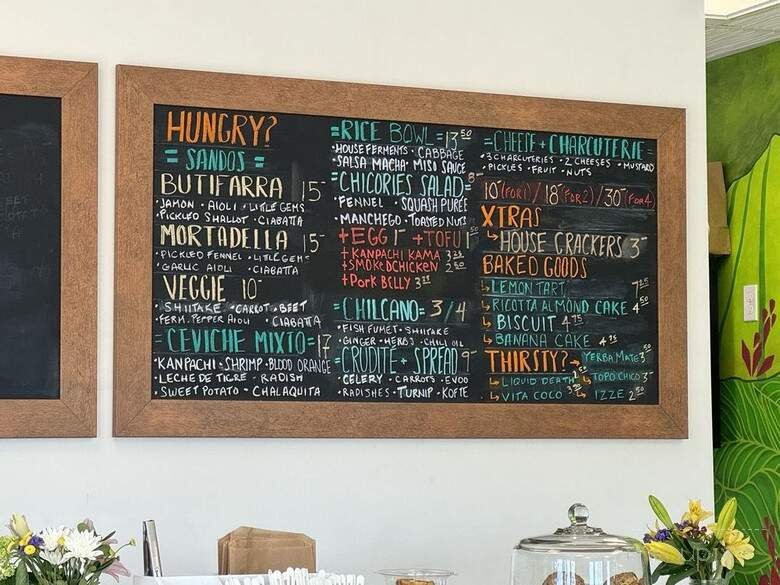 HUNGRY?
= SANDOS =
BUTIFARRA 15-
• JAMON • AIOLI • LITTLE GEMS
• PICKLED SHALLOT • CIABATTA
MORTADELLA 15-
• PICKLED FENNEL • LITTLE GEM
• GARLIC AIOLI • CIABATTA
VEGGIE 10-
• SHIITAKE • CARROT • BEET
• FERM. PEPPER AIOLI • CIABATTA
= CEVICHE MIXTO = 17
• KANPACHI • SHRIMP • BLOOD ORANGE
• LECHE DE TIGRE • RADISH
• SWEET POTATO - CHALAQUITA
= RICE BOWL = 13.50
• HOUSE FERMENTS • CABBAGE
• SALSA MACHA • MISO SAUCE
= CHICORIES SALAD = 8-
• FENNEL • SQUASH PUREE
• MANCHEGO • TOASTED NUTS
+ EGG 1- + TOFU 1.50
+ KANPACHI KAMA 3.25
+ SMOKED CHICKEN 2.50
+ PORK BELLY 3.25
= CHILCANO = 3/4
• FISH FUMET • SHIITAKE
• GINGER • HERBS • CHILI OIL
= CRUDITE + SPREAD 9-
• CELERY • CARROTS • EVOO
• RADISHES • TURNIP • KOFTE
= CHEESE + CHARCUTERIE =
• 3 CHARCUTERIES • 2 CHEESES • MUSTARD
• PICKLES • FRUIT • NUTS
10- (FOR 1) / 18- (FOR 2) / 30- (FOR 4)
XTRAS
↳ HOUSE CRACKERS 3-
BAKED GOODS
↳ LEMON TART
↳ RICOTTA ALMOND CAKE 4.50
↳ BISCUIT 4.75
↳ BANANA CAKE 4.25
THIRSTY? → YERBA MATE 3.50
↳ LIQUID DEATH 2.50 ↳ TOPO CHICO 3-
↳ VITA COCO ↳ IZZE 2.50